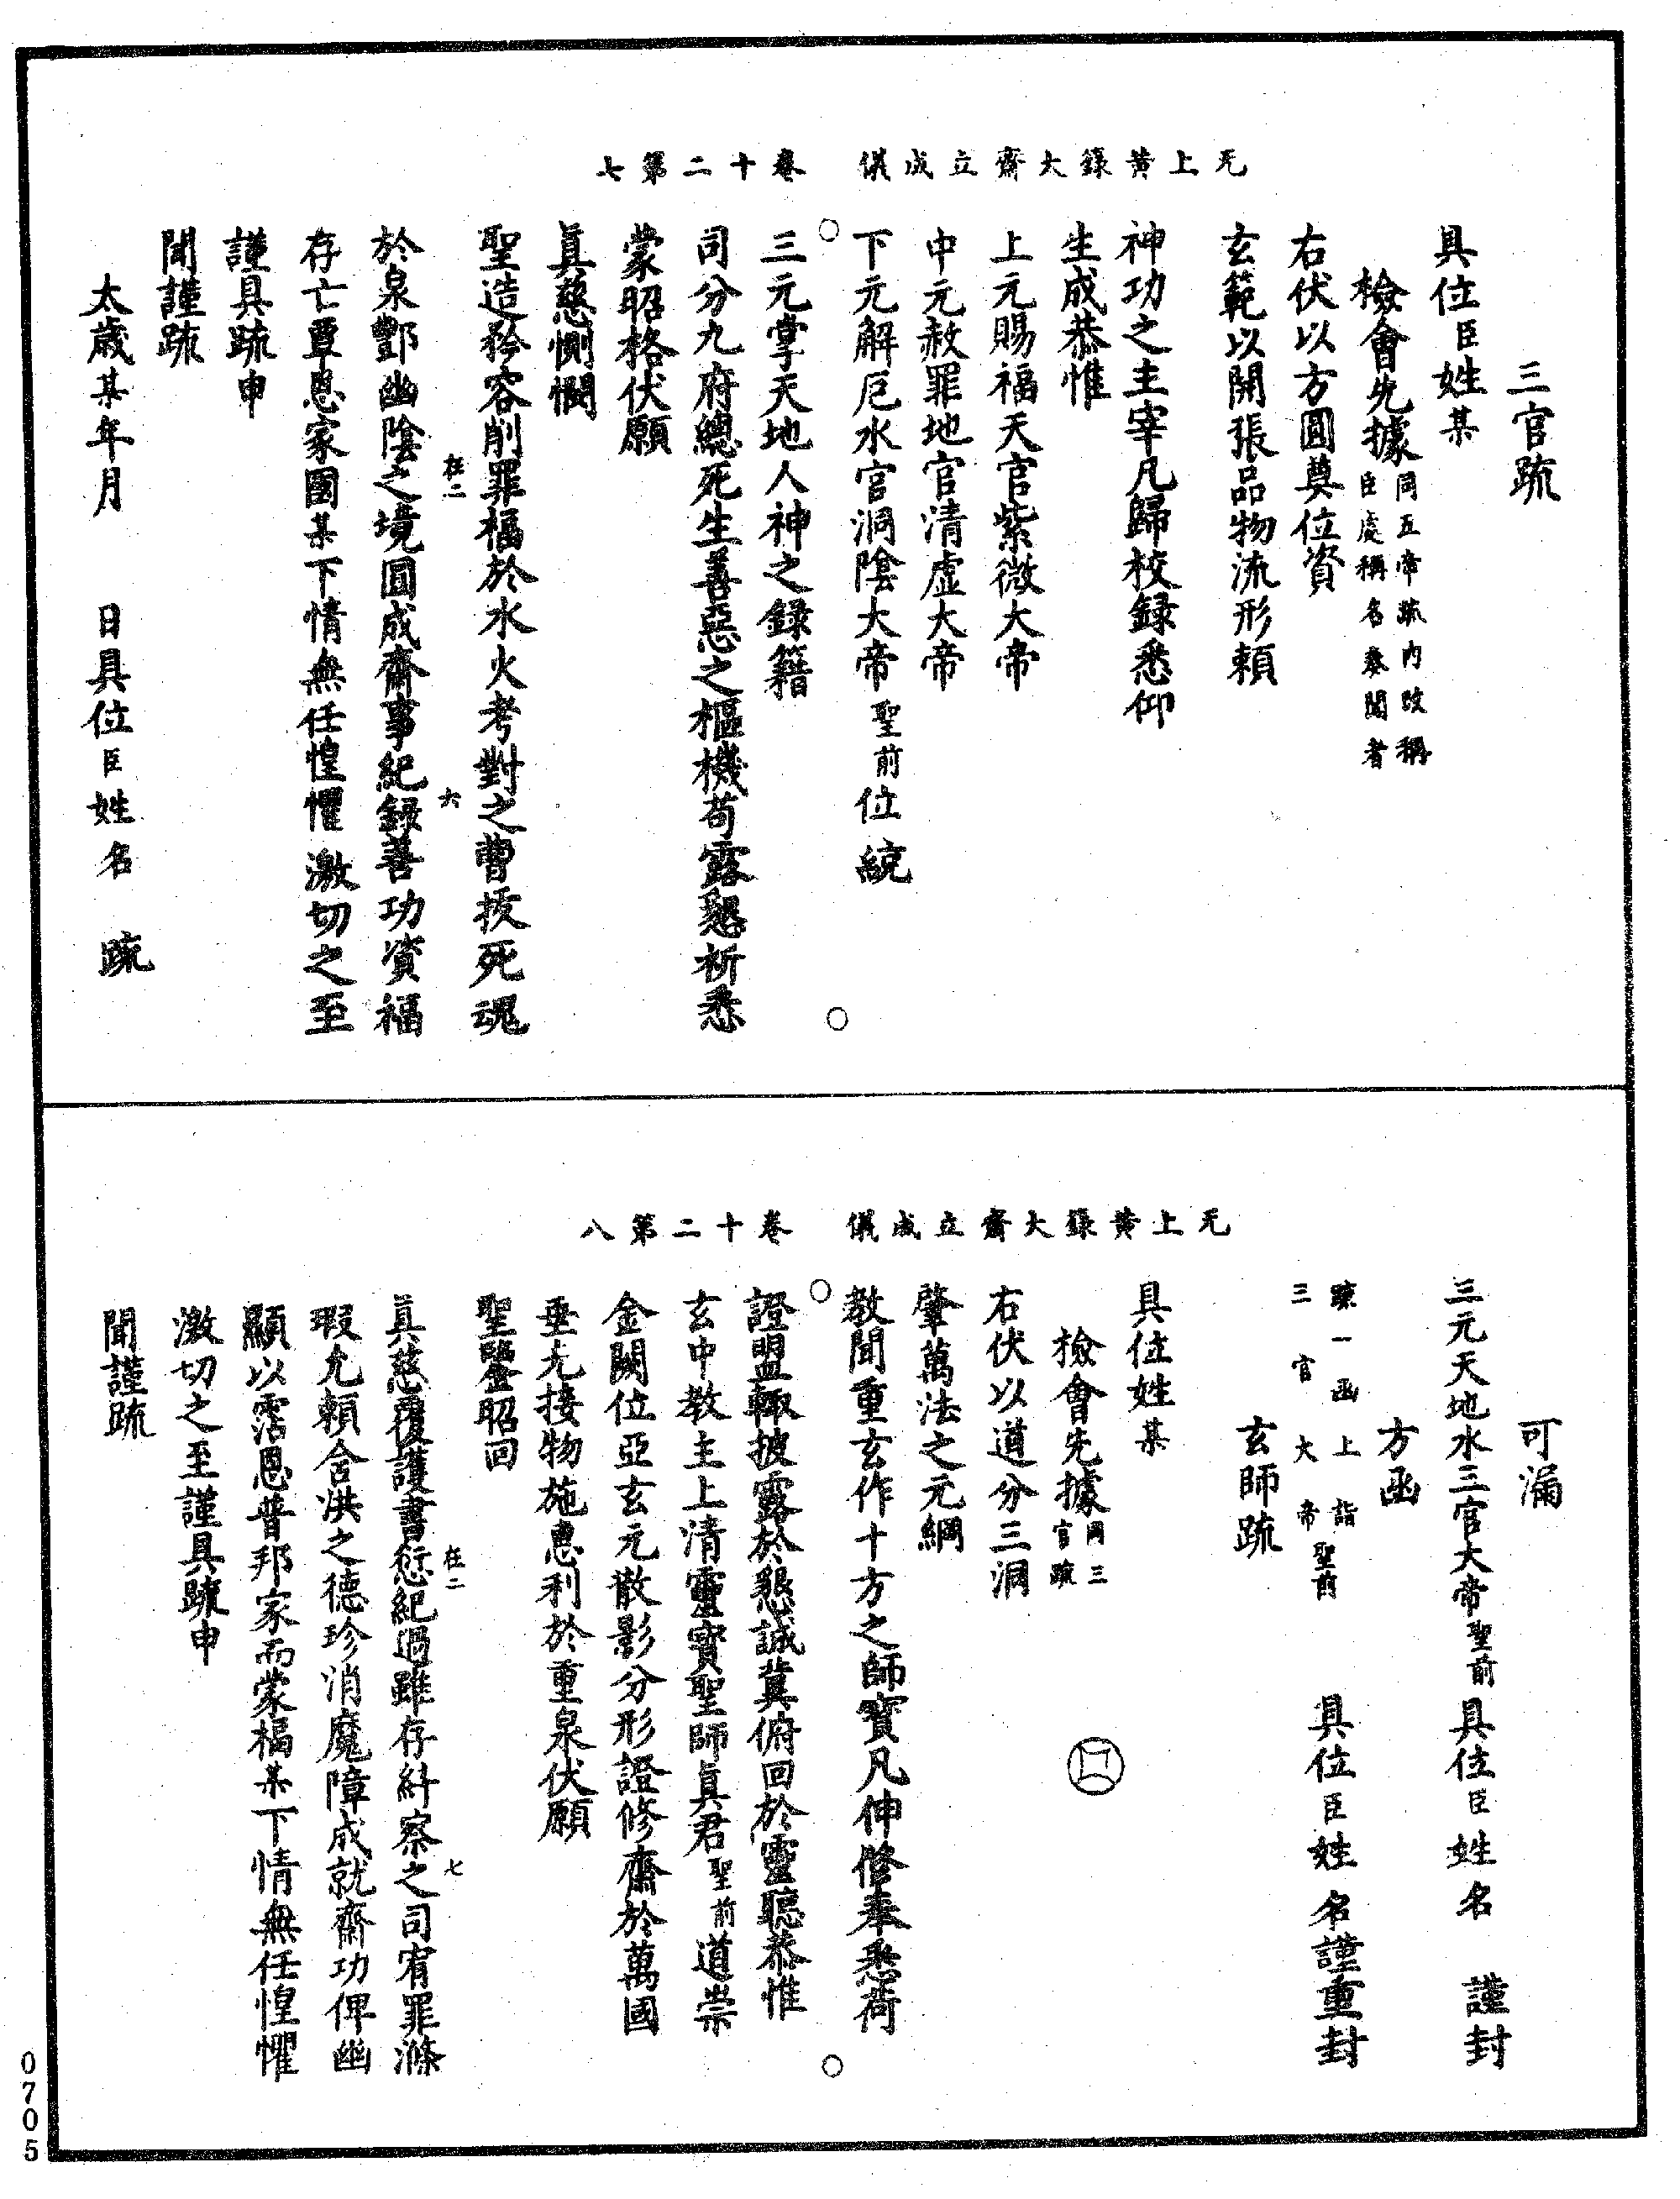 无上黃籙大齋立成儀　卷十二第七
三官䟽
具位臣姓某
檢會先據同五帝䟽內改稱臣處稱名奏聞者
右伏以方圓奠位資
玄範以開張品物流形賴
神功之主宰凡歸校録悉仰
生成恭惟
上元賜福天官紫微大帝
中元赦罪地官清虛大帝
下元解厄水官洞陰大帝聖前位統
三元掌天地人神之録籍
司分九府緫死生善惡之樞機苟露懇祈悉
蒙昭格伏願
眞慈惻憫
聖造矜容削罪福於水火考對之曹拔死魂
於泉酆幽陰之境圓成齋事紀録善功資福
存亡覃恩家國某下情無任惶懼激切之至
謹具䟽申
聞謹䟽
太歲某年月　日具位臣姓名　䟽
在二
六
无上黃籙大齋立成儀　卷十二第八
可漏
三元天地水三官大帝聖前具位臣姓名　謹封
方函
䟽一函上詣三官大帝聖前　具位臣姓名謹重封
玄師䟽
具位姓某
檢會先據同三官䟽
右伏以道分三洞
肇萬法之元綱
教闡重玄作十方之師寶凡伸修奉悉荷
證盟輙披露於懇誠冀俯回於靈聽恭惟
玄中教主上清靈寶聖師眞君聖前道崇
金闕位亞玄元散影分形證修齋於萬國
垂光接物施惠利於重泉伏願
聖鑒昭回
眞慈覆護書愆紀過雖存糾察之司宥罪滌
瑕允賴含洪之德珍消魔障成就齋功俾幽
顯以霑恩普邦家而蒙福某下情無任惶懼
激切之至謹具䟽申
聞謹䟽
在二
七
0705